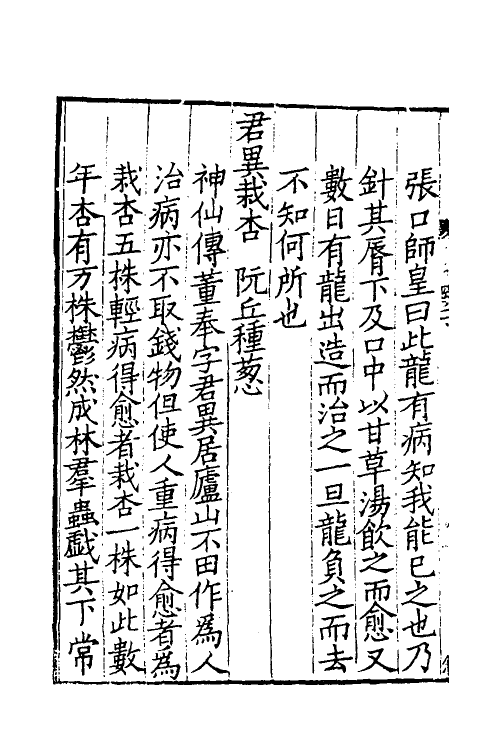 張口師皇曰此龍有病知我能已之也乃
針其脣下及口中以甘草湯飲之而愈又
數日有龍出造而治之一旦龍負之而去
不知何所也
君異栽杏　阮丘種葱
神仙傳董奉字君異居廬山不田作爲人
治病亦不取錢物但使人重病得愈者爲
栽杏五株輕病得愈者栽杏一株如此數
年杏有万株鬱然成林羣蟲戲其下常